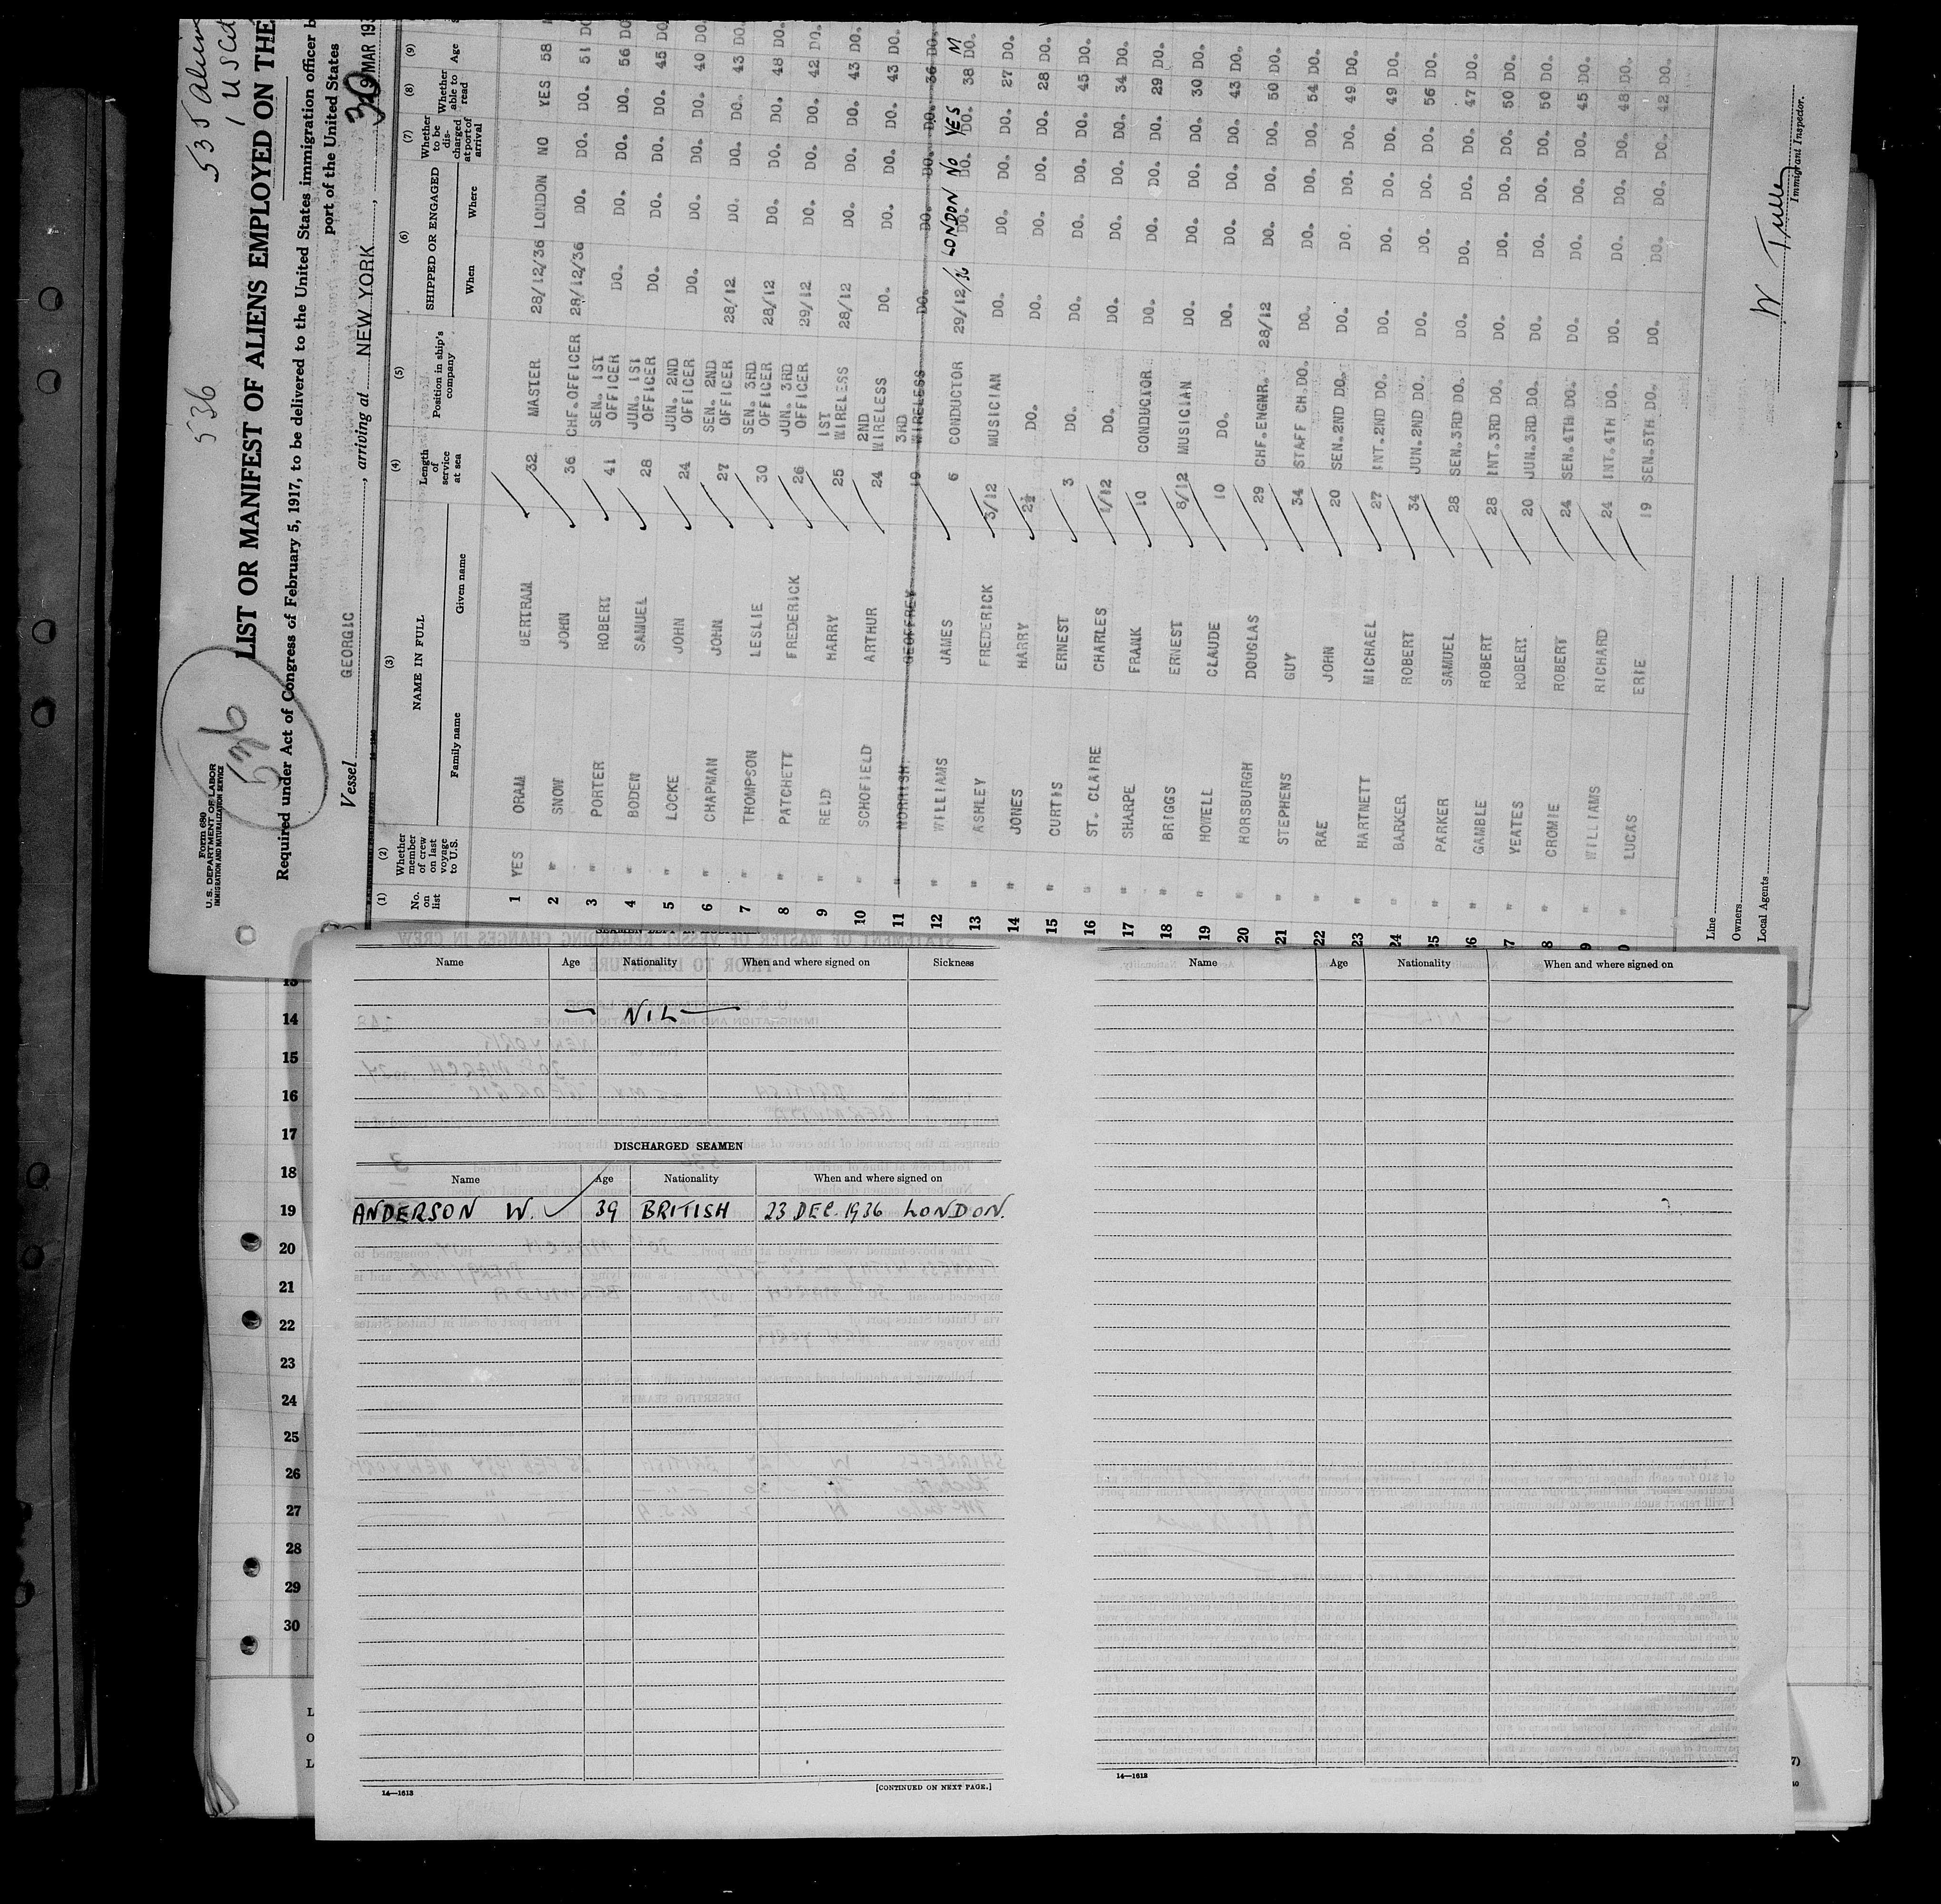 535 Aliens
1 USCit
536
536
Form 680
U.S. DEPARTMENT OF LABOR
IMMIGRATION AND NATURALIZATION SERVICE
LIST OR MANIFEST OF ALIENS EMPLOYED ON THE
Required under Act of Congress of February 5, 1917, to be delivered to the United States immigration officer b
port of the United States
Vessel GEORGIC, arriving at NEW YORK, 30 MAR 193
(1) (2) (3) (4) (5) (6) (7) (8) (9)
No. on list Whether member of crew on last voyage to U.S. NAME IN FULL Family name Given name Length of service at sea Position in ship's company SHIPPED OR ENGAGED When Where Whether to be discharged at port of arrival Whether able to read Age
1 YES ORAM BERTRAM 32 MASTER 28/12/36 LONDON NO YES 58
2 " SNOW JOHN 36 CHF.OFFICER 28/12/36 DO. DO. DO. 51 DO
3 " PORTER ROBERT 41 SEN. 1ST OFFICER DO. DO. DO. DO. 56 DO
4 " BODEN SAMUEL 28 JUN. 1ST OFFICER DO. DO. DO. DO. 45 DO
5 " LOCKE JOHN 24 JUN. 2ND OFFICER DO. DO. DO. DO. 40 DO.
6 " CHAPMAN JOHN 27 SEN. 2ND OFFICER 28/12 DO. DO. DO. 43 DO.
7 " THOMPSON LESLIE 30 SEN. 3RD OFFICER 28/12 DO. DO. DO. 48 DO.
8 " PATCHETT FREDERICK 26 JUN. 3RD OFFICER 29/12 DO. DO. DO. 42 DO.
9 " REID HARRY 25 1ST WIRELESS 28/12 DO. DO. DO. 43 DO.
10 " SCHOFIELD ARTHUR 24 2ND WIRELESS DO. DO. DO. DO. 43 DO.
11 " NORRISH GEOFFREY 19 3RD WIRELESS DO. DO. DO. DO. 36 DO.
12 " WILLIAMS JAMES 6 CONDUCTOR 29/12/36 LONDON NO YES 38 M
13 " ASHLEY FREDERICK 3/12 MUSICIAN DO. DO. DO. DO. 27 DO.
14 " JONES HARRY 2½ DO. DO. DO. DO. DO. 28 DO.
15 " CURTIS ERNEST 3 DO. DO. DO. DO. DO. 45 DO.
16 " ST. CLAIRE CHARLES 1/12 DO. DO. DO. DO. DO. 34 DO.
17 " SHARPE FRANK 10 CONDUCTOR DO. DO. DO. DO. 29 DO.
18 " BRIGGS ERNEST 8/12 MUSICIAN DO. DO. DO. DO. 30 DO.
19 " HOWELL CLAUDE 10 DO. DO. DO. DO. DO. 43 DO.
20 " HORSBURGH DOUGLAS 29 CHF.ENGNR. 28/12 DO. DO. DO. 50 DO.
21 " STEPHENS GUY 34 STAFF CH.DO. DO. DO. DO. DO. 54 DO.
22 " RAE JOHN 20 SEN.2ND DO. DO. DO. DO. DO. 49 DO.
23 " HARTNETT MICHAEL 27 INT.2ND DO. DO. DO. DO. DO. 49 DO.
24 " BARKER ROBERT 34 JUN.2ND DO. DO. DO. DO. DO. 56 DO.
25 " PARKER SAMUEL 28 SEN.3RD DO. DO. DO. DO. DO. 47 DO.
26 " GAMBLE ROBERT 28 INT.3RD DO. DO. DO. DO. DO. 50 DO.
7 " YEATES ROBERT 20 JUN.3RD DO. DO. DO. DO. DO. 50 DO.
8 " CROMIE ROBERT 24 SEN.4TH DO. DO. DO. DO. DO. 45 DO.
9 " WILLIAMS RICHARD 24 INT.4TH DO. DO. DO. DO. DO. 48 DO.
0 " LUCAS ERIE 19 SEN.5TH DO. DO. DO. DO. DO. 42 DO.
Line
Owners
Local Agents
Immigrant Inspector.
Name Age Nationality When and where signed on Sickness
— NIL —
DISCHARGED SEAMEN
Name Age Nationality When and where signed on
ANDERSON W. 39 BRITISH 23 DEC. 1936 LONDON.
14—1613
[CONTINUED ON NEXT PAGE.]
Name Age Nationality When and where signed on
14—1612
13
14
15
16
17
18
19
20
21
22
23
24
25
26
27
28
29
30
L
O
L